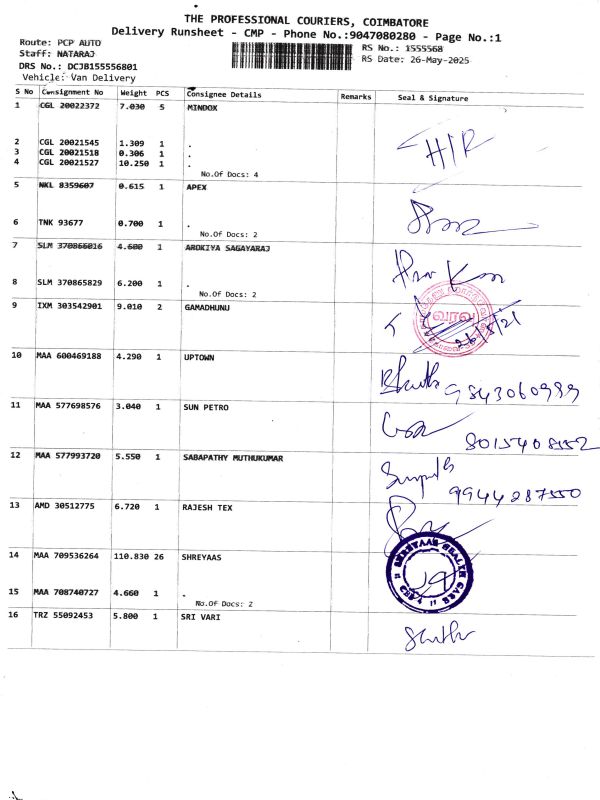 THE PROFESSIONAL COURIERS, COIMBATORE
Delivery Runsheet - CMP - Phone No.:9047080280 - Page No.:1
Route: PCP AUTO
RS No.: 1555568
Staff: NATARAJ
RS Date: 26-May-2025
DRS No.: DCJB155556801
Vehicle: Van Delivery
S No Consignment No Weight PCS Consignee Details Remarks Seal & Signature
1 CGL 20022372 7.030 5 MINDOX
HIR
2 CGL 20021545 1.309 1 .
3 CGL 20021518 0.306 1 .
4 CGL 20021527 10.250 1 .
No.Of Docs: 4
5 NKL 8359607 0.615 1 APEX
6 TNK 93677 0.700 1 .
No.Of Docs: 2
7 SLM 370866016 4.600 1 AROKIYA SAGAYARAJ
8 SLM 370865829 6.200 1 .
No.Of Docs: 2
9 IXM 303542901 9.010 2 GAMADHUNU
வரவு
26/5/21
10 MAA 600469188 4.290 1 UPTOWN
9843060989
11 MAA 577698576 3.040 1 SUN PETRO
8015408552
12 MAA 577993720 5.550 1 SABAPATHY MUTHUKUMAR
9944287550
13 AMD 30512775 6.720 1 RAJESH TEX
14 MAA 709536264 110.830 26 SHREYAAS
SHREYAAS HEALTH CARE
15 MAA 708740727 4.660 1 .
No.Of Docs: 2
16 TRZ 55092453 5.800 1 SRI VARI